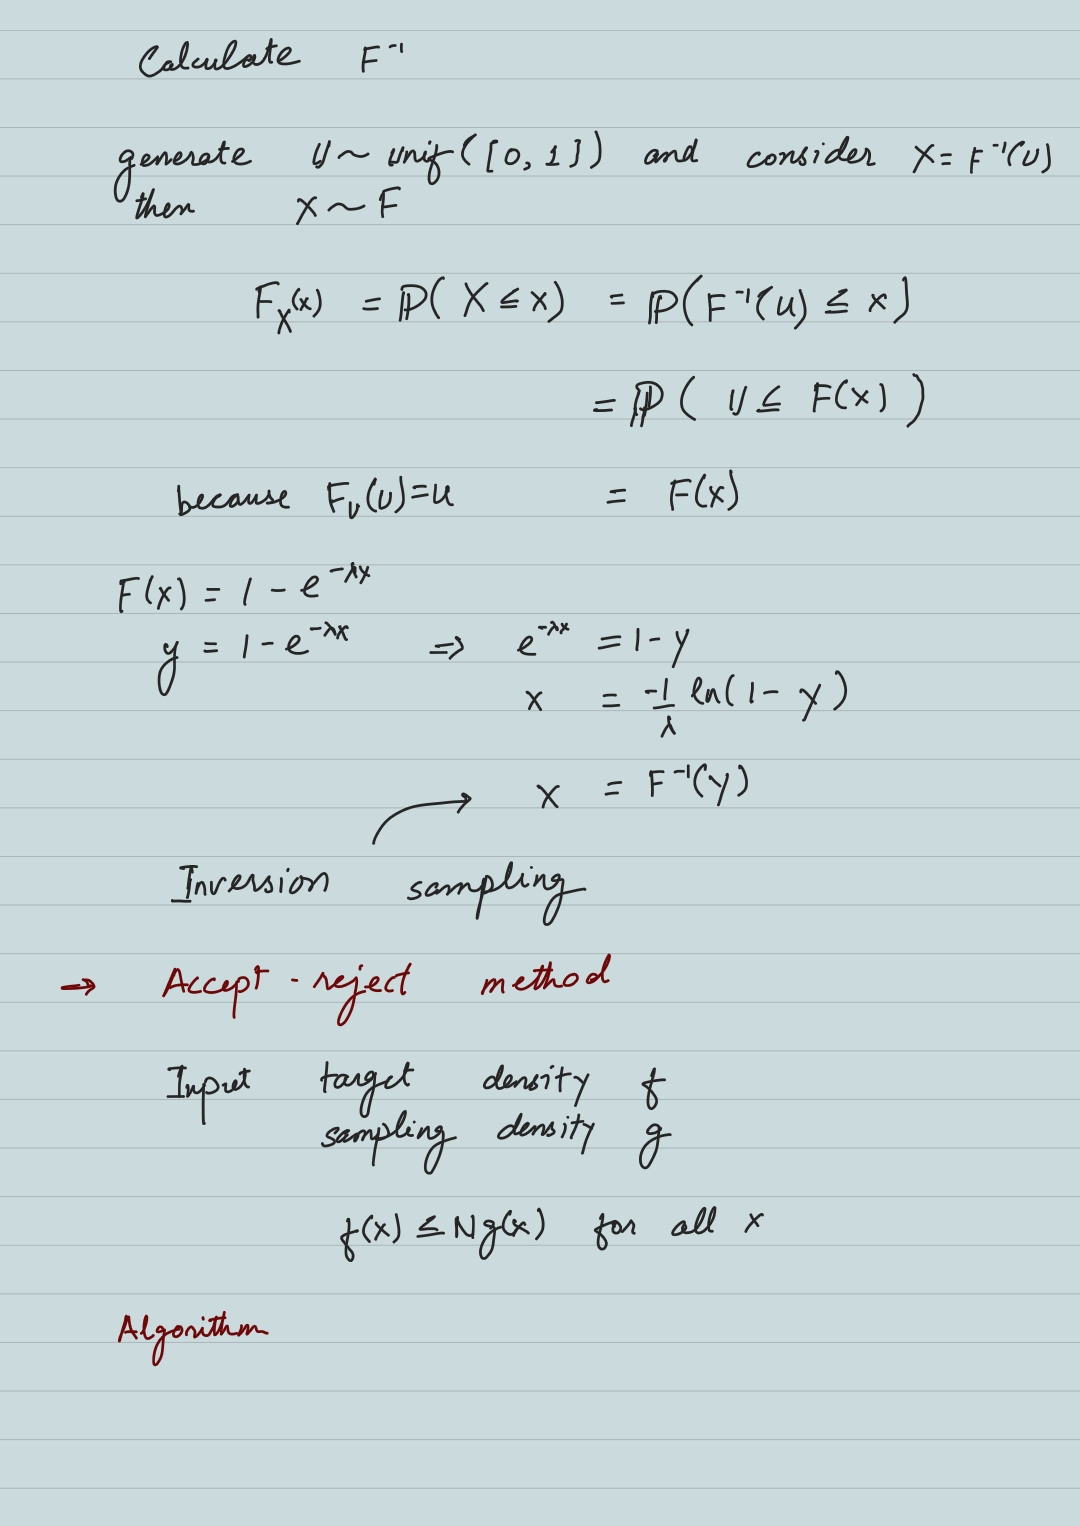 Calculate F⁻¹
generate U ~ unif([0,1]) and consider X = F⁻¹(U)
then X ~ F
F_X(x) = ℙ(X ≤ x) = ℙ(F⁻¹(u) ≤ x)
= ℙ(U ≤ F(x))
because F_U(u) = u = F(x)
F(x) = 1 - e^{-λx}
y = 1 - e^{-λx} ⇒ e^{-λx} = 1 - y
x = -1/λ ln(1 - y)
x = F⁻¹(y)
Inversion sampling
→ Accept - reject method
Input target density f
sampling density g
f(x) ≤ Ng(x) for all x
Algorithm